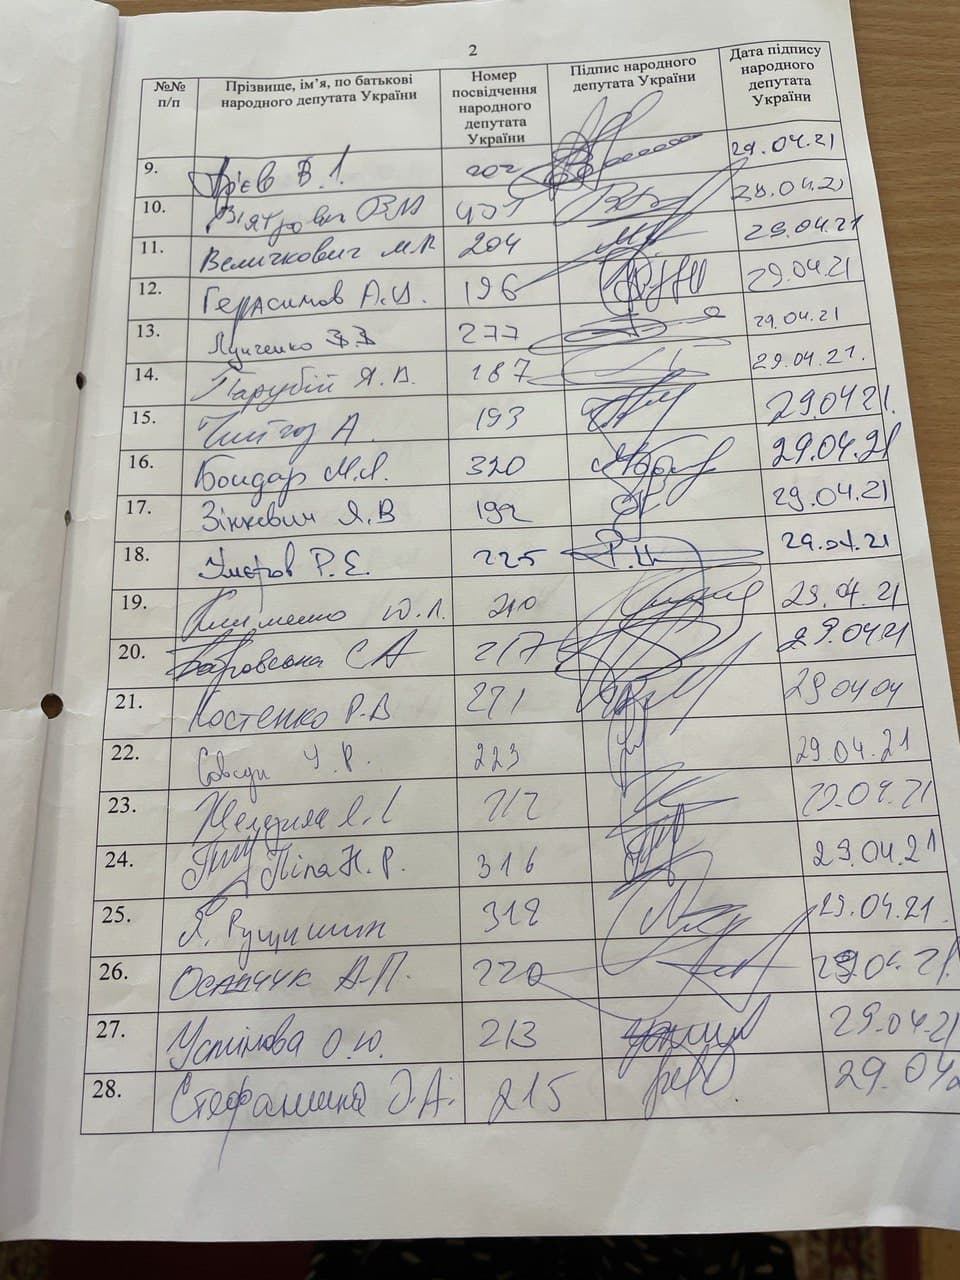 2
№№ п/п Прізвище, ім’я, по батькові народного депутата України Номер посвідчення народного депутата України Підпис народного депутата України Дата підпису народного депутата України
9. Ар'єв В.І. 202 29.04.21
10. В'ятрович В.М 401 29.04.21
11. Величкович М.Р 204 29.04.21
12. Герасимов А.И. 196 29.04.21
13. Лунченко 277 29.04.21
14. Парубій А.В. 187 29.04.21.
15. А. 193 29.04 21.
16. Бондар М.Л. 320 29.04.21
17. Зінкевич Я.В 192 29.04.21
18. Умєров Р.Е. 225 Р.У 29.04.21
19. Клименко Ю.Л. 210 29.04.21
20. Боровська С А 217 29.0421
21. Костенко Р.В 271 29 04 04
22. Совсун І.Р. 223 29.04.21
23. 212 29.04.21
24. Піпа Н.Р. 316 29.04.21
25. Я. Рущишин 318 29.04.21.
26. Осадчук А.П. 220 29.04.21
27. Устінова О.Ю. 213 29.04.21
28. Стефанишина О.А. 215 29.04